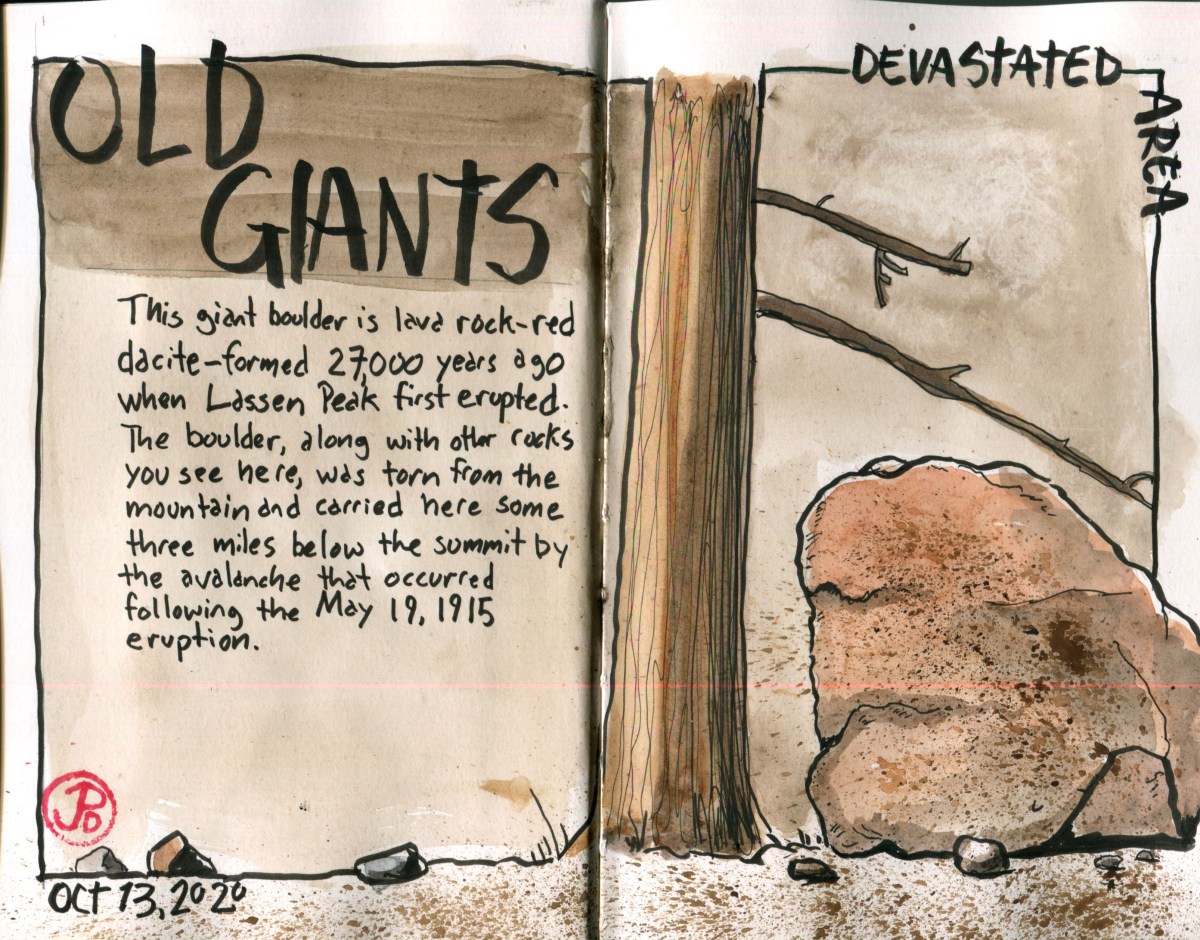 OLD
GIANTS
This giant boulder is lava rock-red
dacite-formed 27,000 years ago
when Lassen Peak first erupted.
The boulder, along with other rocks
you see here, was torn from the
mountain and carried here some
three miles below the summit by
the avalanche that occurred
following the May 19, 1915
eruption.
JPD
OCT 13, 2020
DEVASTATED
AREA